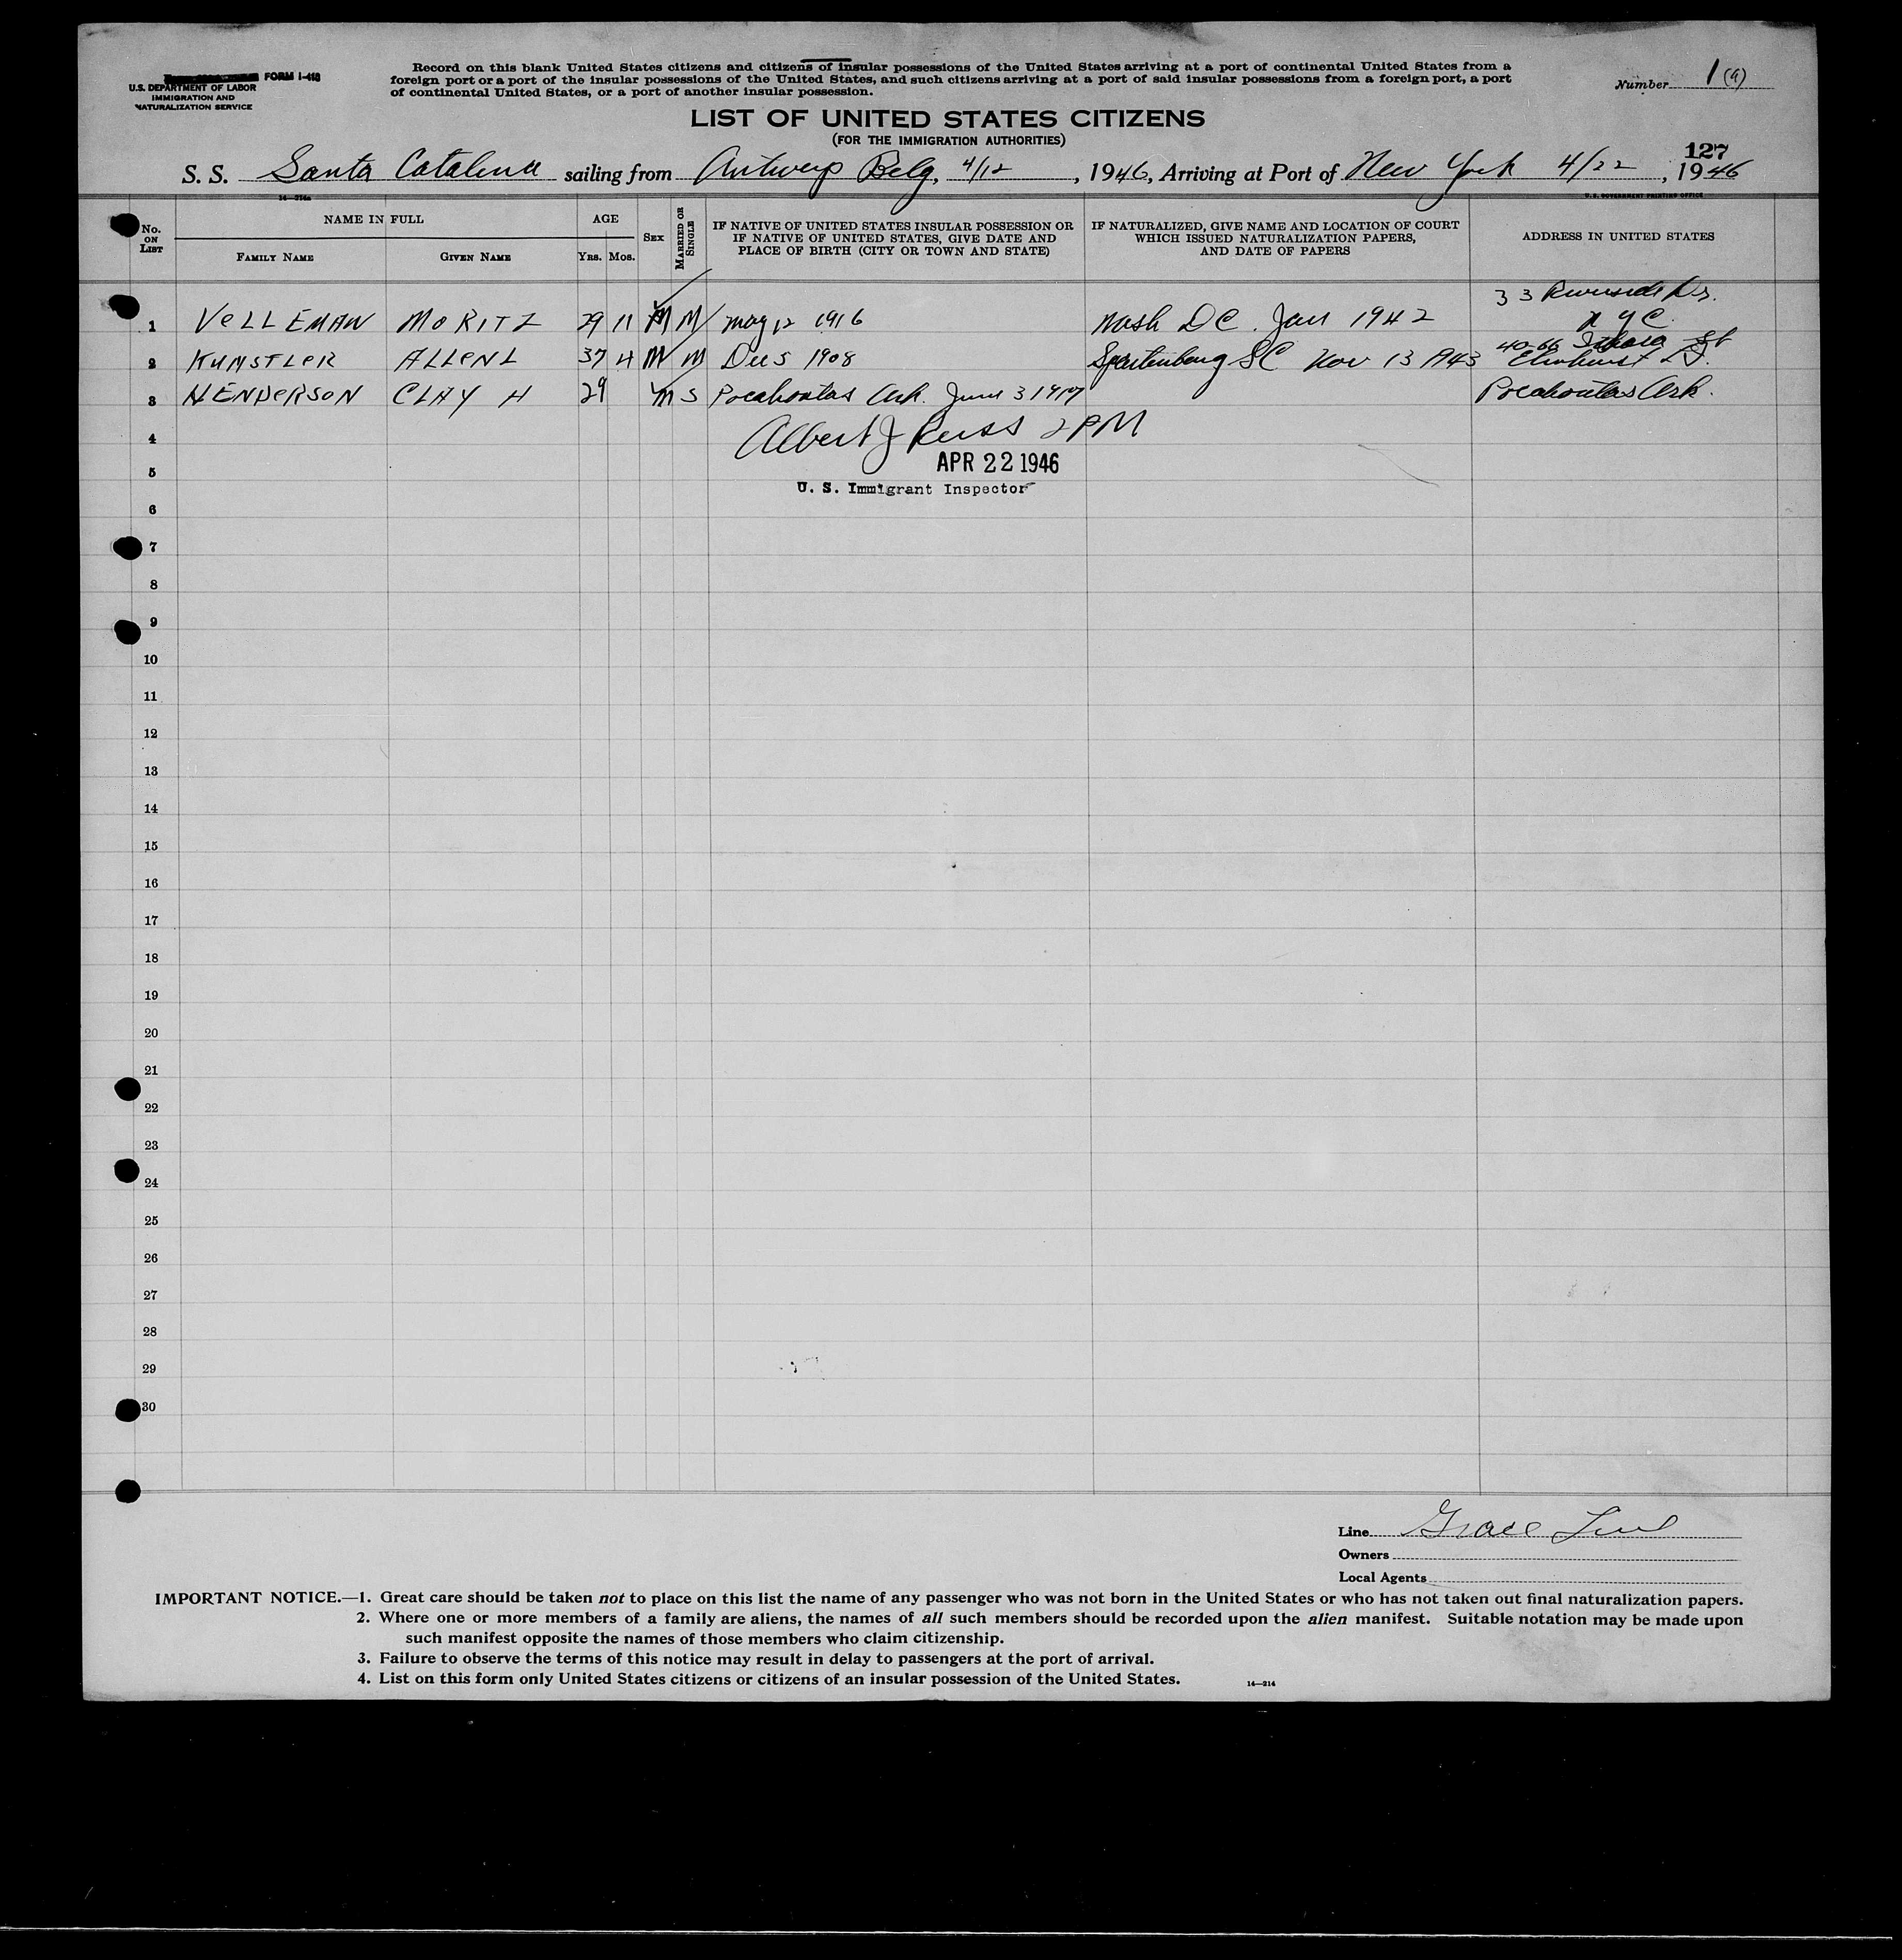 FORM I-418
U.S. DEPARTMENT OF LABOR
IMMIGRATION AND
NATURALIZATION SERVICE
Record on this blank United States citizens and citizens of insular possessions of the United States arriving at a port of continental United States from a
foreign port or a port of the insular possessions of the United States, and such citizens arriving at a port of said insular possessions from a foreign port, a port
of continental United States, or a port of another insular possession.
Number 1 (a)
LIST OF UNITED STATES CITIZENS
(FOR THE IMMIGRATION AUTHORITIES)
127
S. S. Santa Catalina sailing from Antwerp Belg, 4/12, 1946, Arriving at Port of New York 4/22, 1946
14—214a
U. S. GOVERNMENT PRINTING OFFICE
No. ON LIST
NAME IN FULL
FAMILY NAME
GIVEN NAME
AGE
Yrs. Mos.
SEX
MARRIED OR SINGLE
IF NATIVE OF UNITED STATES INSULAR POSSESSION OR
IF NATIVE OF UNITED STATES, GIVE DATE AND
PLACE OF BIRTH (CITY OR TOWN AND STATE)
IF NATURALIZED, GIVE NAME AND LOCATION OF COURT
WHICH ISSUED NATURALIZATION PAPERS,
AND DATE OF PAPERS
ADDRESS IN UNITED STATES
33 Riverside Dr.
1 VELLEMAN MORITZ 29 11 M M May 12 1916 Wash DC. Jan 1942 N Y C.
40-66 Ithaca St
2 KUNSTLER ALLEN L 37 4 M M Dec 5 1908 Spartenburg SC Nov 13 1943 Elmhurst L.I.
3 HENDERSON CLAY H 29 M S Pocahontas Ark. June 3 1917 Pocahontas Ark.
4 Albert J Reiss 2 PM
5 APR 22 1946
U. S. Immigrant Inspector
6
7
8
9
10
11
12
13
14
15
16
17
18
19
20
21
22
23
24
25
26
27
28
29
30
Line Grace Line
Owners
Local Agents
IMPORTANT NOTICE.—1. Great care should be taken not to place on this list the name of any passenger who was not born in the United States or who has not taken out final naturalization papers.
2. Where one or more members of a family are aliens, the names of all such members should be recorded upon the alien manifest. Suitable notation may be made upon
such manifest opposite the names of those members who claim citizenship.
3. Failure to observe the terms of this notice may result in delay to passengers at the port of arrival.
4. List on this form only United States citizens or citizens of an insular possession of the United States.
14—214